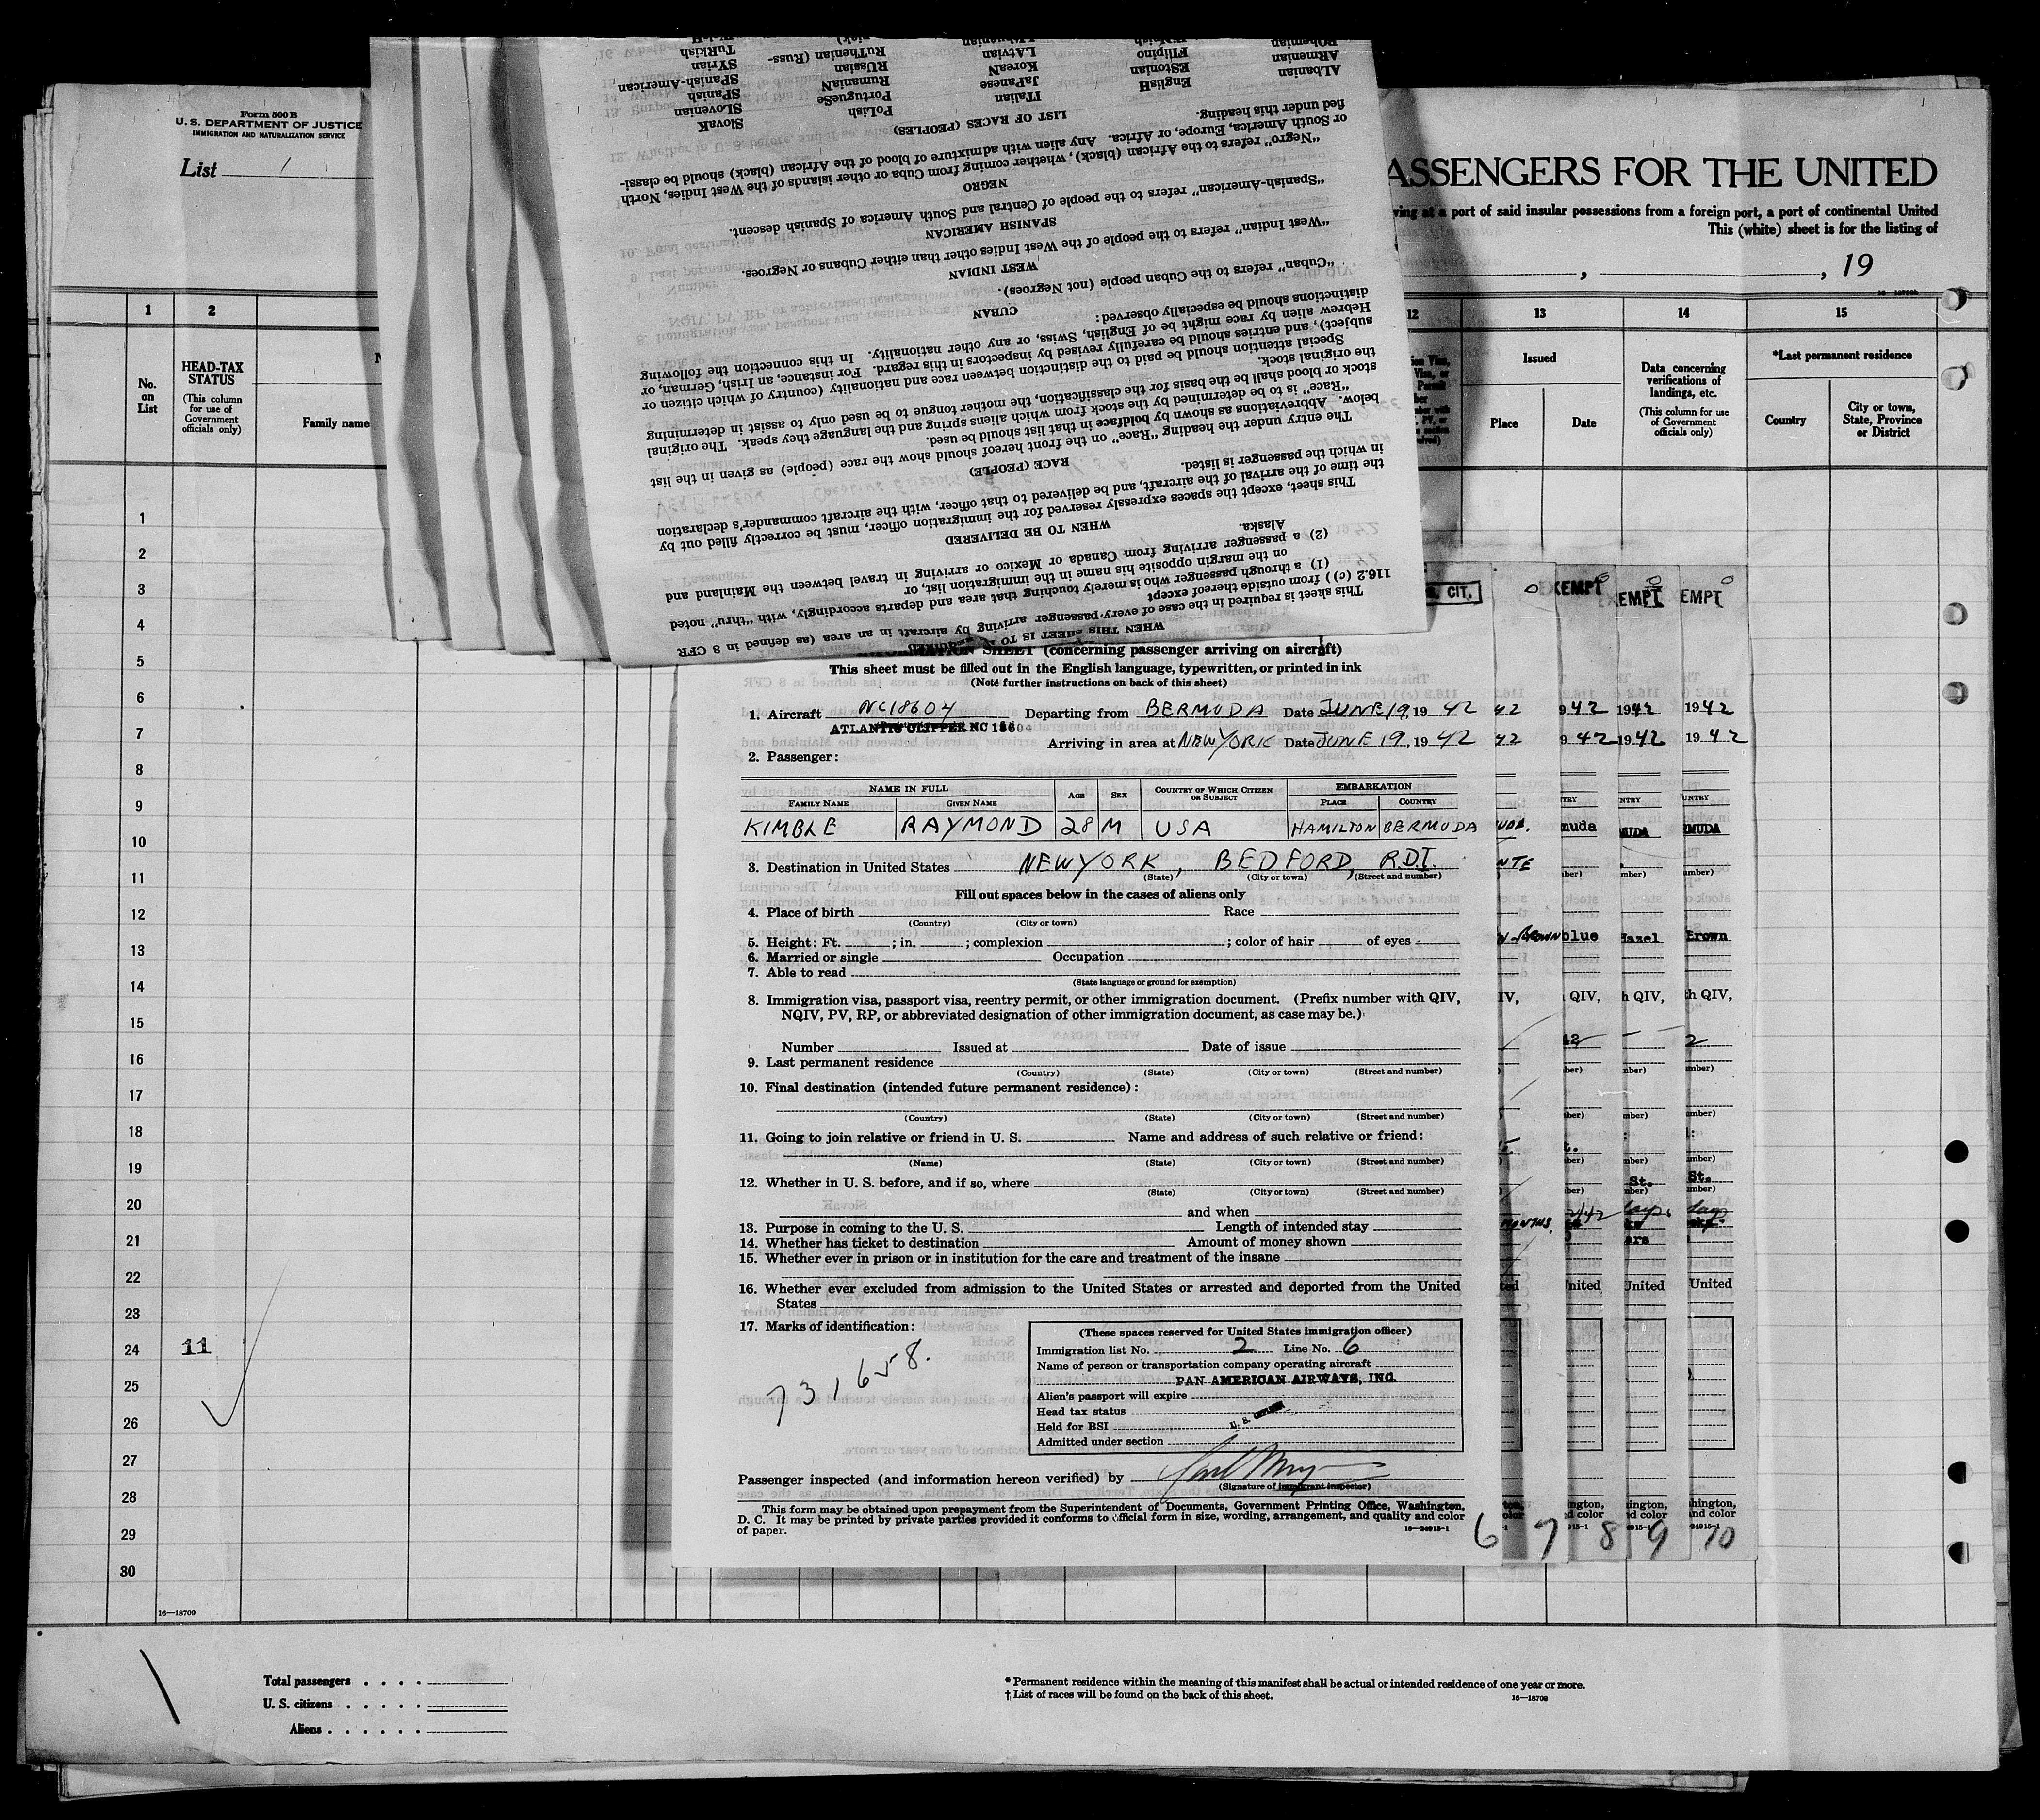 Form 500 B
U. S. DEPARTMENT OF JUSTICE
IMMIGRATION AND NATURALIZATION SERVICE
List 1
ASSENGERS FOR THE UNITED
ving at a port of said insular possessions from a foreign port, a port of continental United
This (white) sheet is for the listing of
, , 19
1 2 12 13 14 15
No. on List
HEAD-TAX STATUS
(This column for use of Government officials only)
Family name
Issued
Place
Date
Data concerning verifications of landings, etc.
(This column for use of Government officials only)
*Last permanent residence
Country
City or town, State, Province or District
1
2
3
4
5
6
7
8
9
10
11
12
13
14
15
16
17
18
19
20
21
22
23
24 11
25
26
27
28
29
30
16—18709
Total passengers . . . .
U. S. citizens . . . . .
Aliens . . . . . .
* Permanent residence within the meaning of this manifest shall be actual or intended residence of one year or more.
† List of races will be found on the back of this sheet. 16—18709
WHEN THIS SHEET IS TO
This sheet is required in the case of every passenger arriving by aircraft in an area (as defined in 8 CFR
116.2 (c)) from outside thereof except
(1) a through passenger who is merely touching that area and departs accordingly, with "thru" noted
on the margin opposite his name in the immigration list, or
(2) a passenger arriving from Canada or Mexico or arriving in travel between the Mainland and
Alaska.
WHEN TO BE DELIVERED
This sheet, except the spaces expressly reserved for the immigration officer, must be correctly filled out by
the time of the arrival of the aircraft, and be delivered to that officer, with the aircraft commander's declaration
in which the passenger is listed.
RACE (PEOPLE)
The entry under the heading "Race" on the front hereof should show the race (people) as given in the list
below. Abbreviations as shown by boldface in that list should be used.
"Race" is to be determined by the stock from which aliens spring and the language they speak. The original
stock or blood shall be the basis for the classification, the mother tongue to be used only to assist in determining
the original stock.
Special attention should be paid to the distinction between race and nationality (country of which citizen or
subject), and entries should be carefully revised by inspectors in this regard. For instance, an Irish, German, or
Hebrew alien by race might be of English, Swiss, or any other nationality. In this connection the following
distinctions should be especially observed:
CUBAN
"Cuban" refers to the Cuban people (not Negroes).
WEST INDIAN
"West Indian" refers to the people of the West Indies other than either Cubans or Negroes.
SPANISH AMERICAN
"Spanish-American" refers to the people of Central and South America of Spanish descent.
NEGRO
"Negro" refers to the African (black), whether coming from Cuba or other islands of the West Indies, North
or South America, Europe, or Africa. Any alien with admixture of blood of the African (black) should be classi-
fied under this heading.
LIST OF RACES (PEOPLES)
ALbanian EnglisH ITalian PoLish SlovaK
ARmenian EStonian JaPanese PortugueSe SLovenian
BOhemian FIlipino KoreaN RumaniaN SPanish
LAtvian RUssian SPanish-American
RuThenian (Russ- SYrian
TuRkish
SHEET (concerning passenger arriving on aircraft)
This sheet must be filled out in the English language, typewritten, or printed in ink
(Note further instructions on back of this sheet)
1. Aircraft NC18604 Departing from BERMUDA Date JUNE 19, 19 42
ATLANTIC CLIPPER NC 18604
Arriving in area at NEW YORK Date JUNE 19, 19 42
2. Passenger:
NAME IN FULL AGE SEX COUNTRY OF WHICH CITIZEN OR SUBJECT EMBARKATION
FAMILY NAME GIVEN NAME PLACE COUNTRY
KIMBLE RAYMOND 28 M USA HAMILTON BERMUDA
3. Destination in United States NEW YORK, BEDFORD, R.D.I.
(State) (City or town) (Street and number)
Fill out spaces below in the cases of aliens only
4. Place of birth Race
(Country) (City or town)
5. Height: Ft. ; in. ; complexion ; color of hair of eyes
6. Married or single Occupation
7. Able to read
(State language or ground for exemption)
8. Immigration visa, passport visa, reentry permit, or other immigration document. (Prefix number with QIV,
NQIV, PV, RP, or abbreviated designation of other immigration document, as case may be.)
Number Issued at Date of issue
9. Last permanent residence
(Country) (State) (City or town) (Street and number)
10. Final destination (intended future permanent residence):
(Country) (State) (City or town) (Street and number)
11. Going to join relative or friend in U. S. Name and address of such relative or friend:
(Name) (State) (City or town) (Street and number)
12. Whether in U. S. before, and if so, where
(State) (City or town) (Street and number)
and when
13. Purpose in coming to the U. S. Length of intended stay
14. Whether has ticket to destination Amount of money shown
15. Whether ever in prison or in institution for the care and treatment of the insane
16. Whether ever excluded from admission to the United States or arrested and deported from the United
States
17. Marks of identification:
731658.
(These spaces reserved for United States immigration officer)
Immigration list No. 2 Line No. 6
Name of person or transportation company operating aircraft
PAN AMERICAN AIRWAYS, INC.
Alien's passport will expire
Head tax status
Held for BSI U. S. CITIZEN
Admitted under section
Passenger inspected (and information hereon verified) by
(Signature of immigrant inspector)
This form may be obtained upon prepayment from the Superintendent of Documents, Government Printing Office, Washington,
D. C. It may be printed by private parties provided it conforms to official form in size, wording, arrangement, and quality and color
of paper. 16—24915-1
CIT. EXEMPT EMPT EMPT
42 942 1942 1942
42 9 42 1942 1942
muda MUDA MUDA
BROWN blue Hazel Brown
IV, QIV, h QIV, th QIV,
St. St.
MONTHS.
United United United
6 7 8 9 10